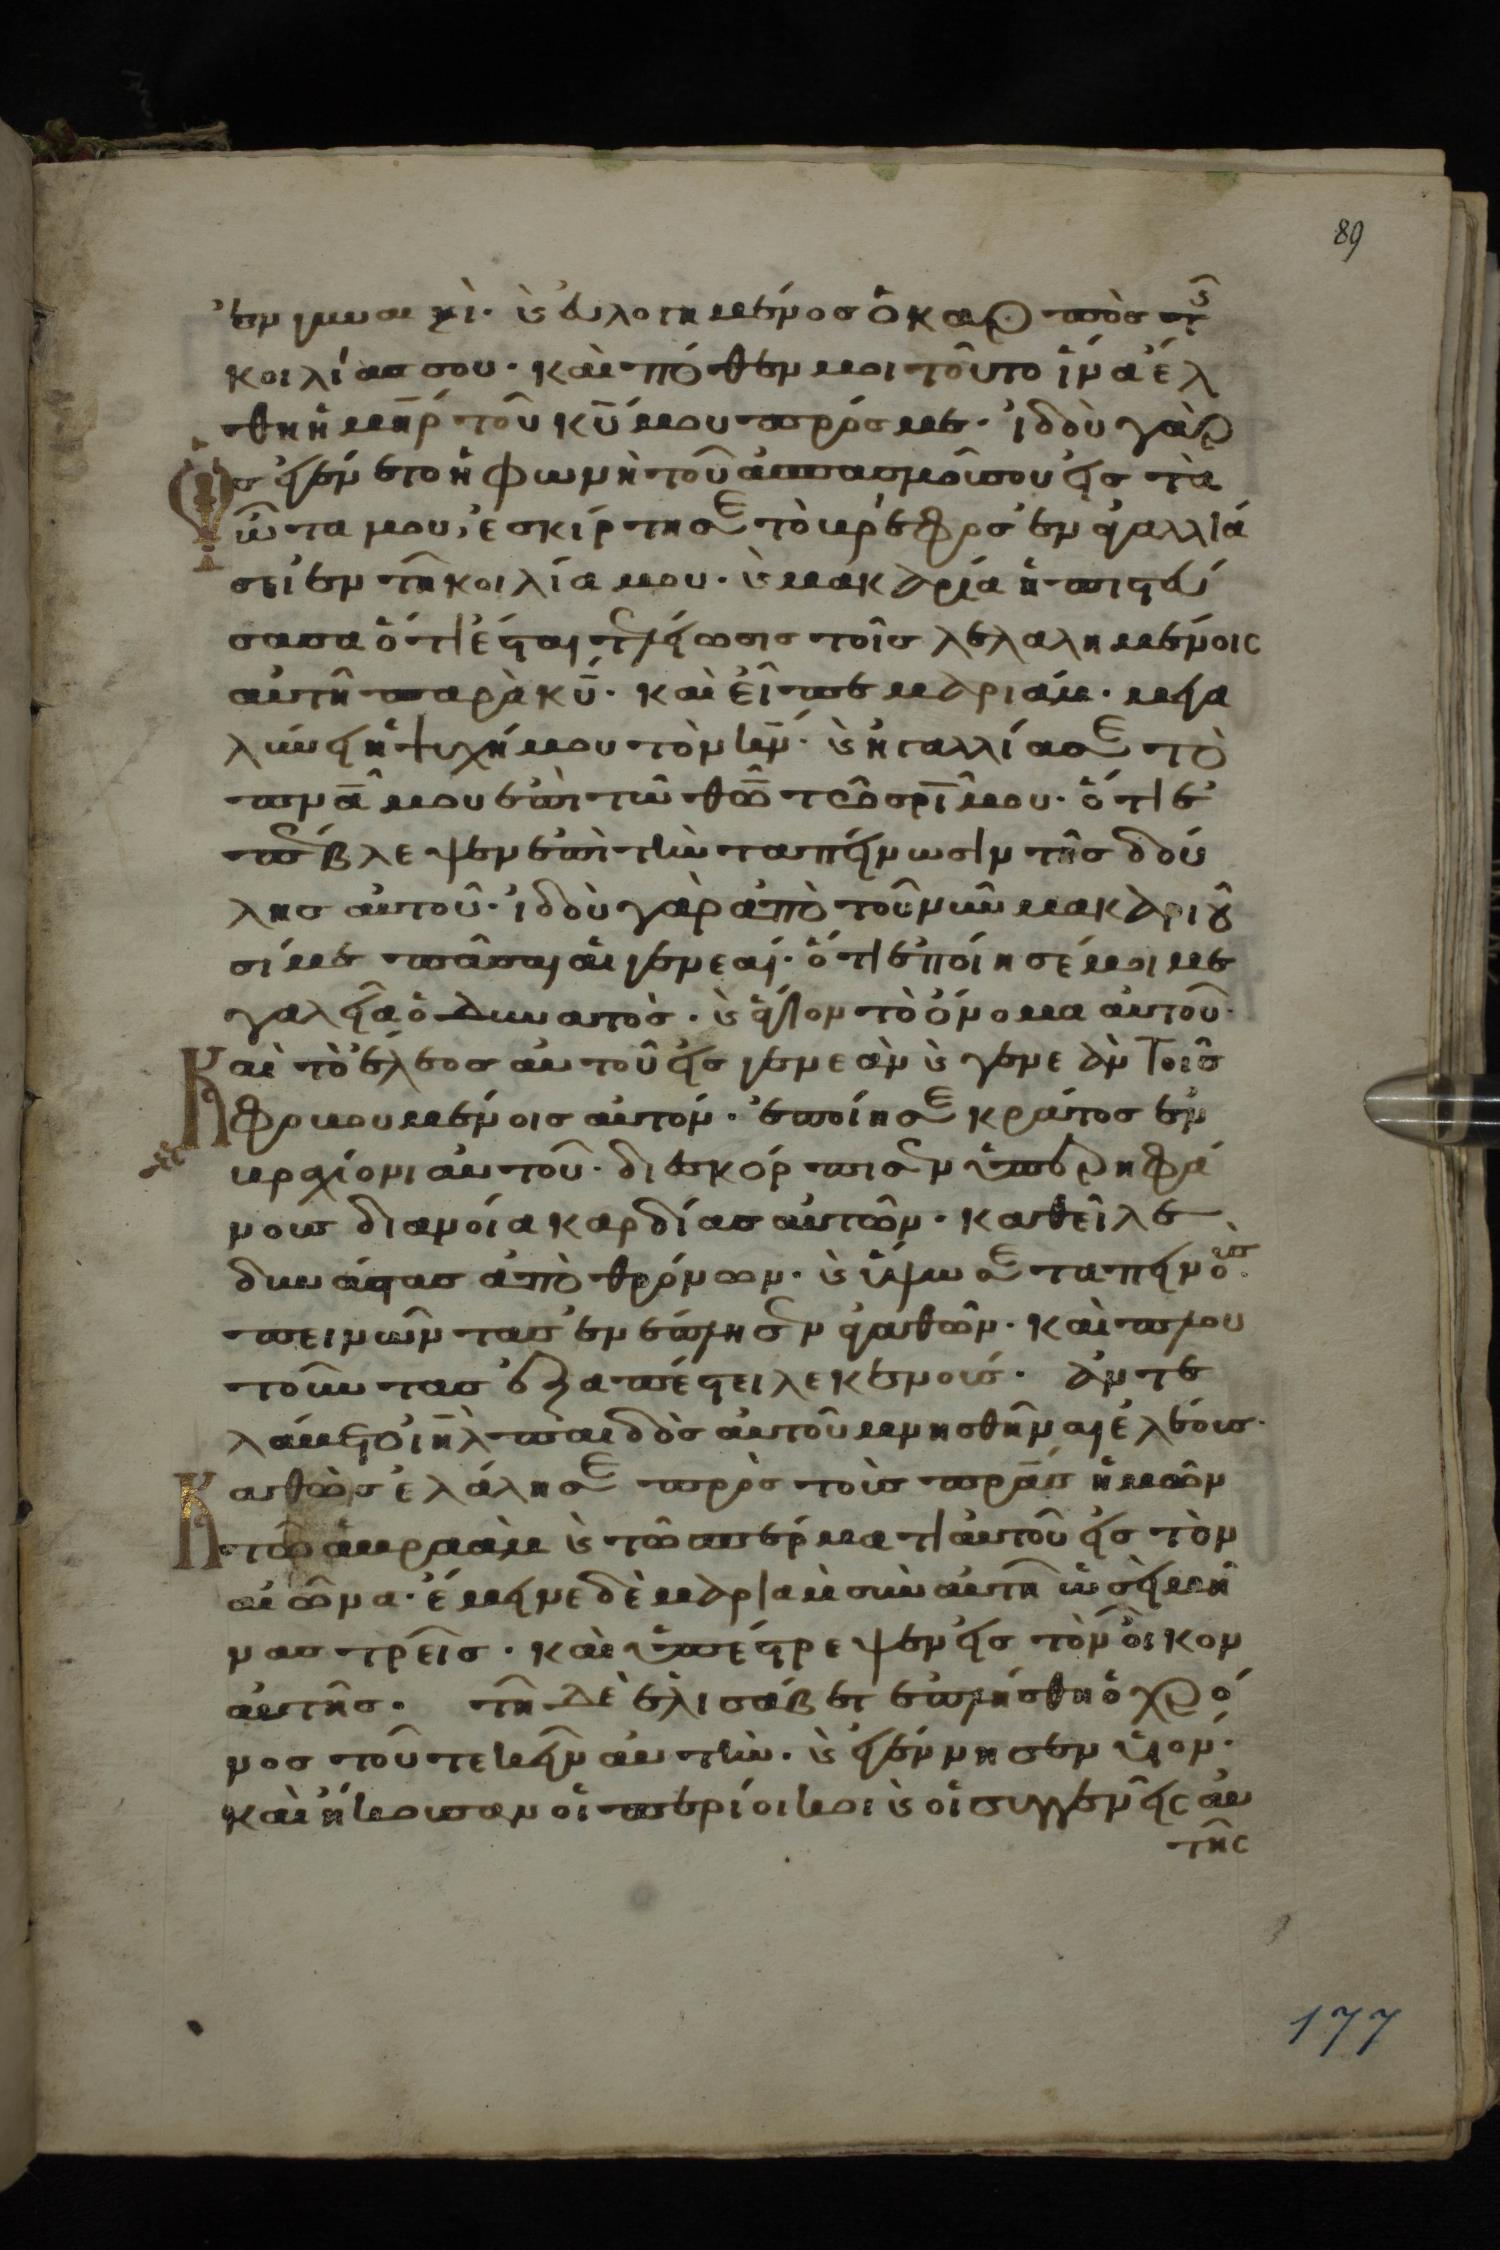 89
ἐν γυναιξὶ. καὶ εὐλογημένος ὁ καρπὸς τῆς
κοιλίας σου. καὶ πόθεν μοι τοῦτο ἵνα ἔλ
θη ἡ μῆρ τοῦ κῦ μου πρός με. ἰδοὺ γὰρ
ὡς ἐγένετο ἡ φωνὴ τοῦ ἀσπασμοῦ σου εἰς τὰ
ὦτα μου, ἐσκίρτησε τὸ βρέφος ἐν ἀγαλλιά
σει ἐν τῆ κοιλία μου. καὶ μακαρία ἡ πιστεύ
σασα ὅτι ἔσται τελείωσις τοῖς λελαλημένοις
αὐτῆ παρὰ κῦ. καὶ εἶπε μαριάμ. μεγα
λύνει ἡ ψυχή μου τὸν κν̄. καὶ ἠγαλλίασε τὸ
πνᾶ μου ἐπὶ τῶ θῶ τῶ σρῖ μου. ὅτι ἐ
πέβλεψεν ἐπὶ τὴν ταπείνωσιν τῆς δού
λης αὐτοῦ. ἰδοὺ γὰρ ἀπὸ τοῦ νῦν μακαριοῦ
σί με πᾶσαι αἱ γενεαί. ὅτι ἐποίησέ μοι με
γαλεῖα ὁ δυνατὸς. καὶ ἅγιον τὸ ὄνομα αὐτοῦ.
Καὶ τὸ ἔλεος αὐτοῦ εἰς γενεὰν καὶ γενεὰν τοῖς
φοβουμένοις αὐτόν. ἐποίησε κράτος ἐν
βραχίονι αὐτοῦ. διεσκόρπισεν ὑπερηφά
νους διανοία καρδίας αὐτῶν. καθεῖλε
δυνάστας ἀπὸ θρόνων. καὶ ὕψωσε ταπεινοὺς.
πεινῶντας ἐνέπλησεν ἀγαθῶν. καὶ πλου
τοῦντας ἐξαπέστειλε κενούς. ἀντε
λάβετο ιη̄λ παιδὸς αὐτοῦ μνησθῆναι ἐλέους.
Καθὼς ἐλάλησε πρὸς τοὺς πρᾶς ἡμῶν
τῶ ἀβραὰμ καὶ τῶ σπέρματι αὐτοῦ εἰς τὸν
αἰῶνα. ἔμεινε δὲ μαριὰμ σὺν αὐτῆ ὡσεὶ μῆ
νας τρεῖς. καὶ ὑπέστρεψεν εἰς τὸν οἶκον
αὐτῆς. τῆ δὲ ἐλισάβετ ἐπλήσθη ὁ χρό
νος τοῦ τεκεῖν αὐτὴν. καὶ ἐγέννησεν υἱόν.
καὶ ἤκουσαν οἱ περίοικοι καὶ οἱ συγγενεῖς αὐ
τῆς
177